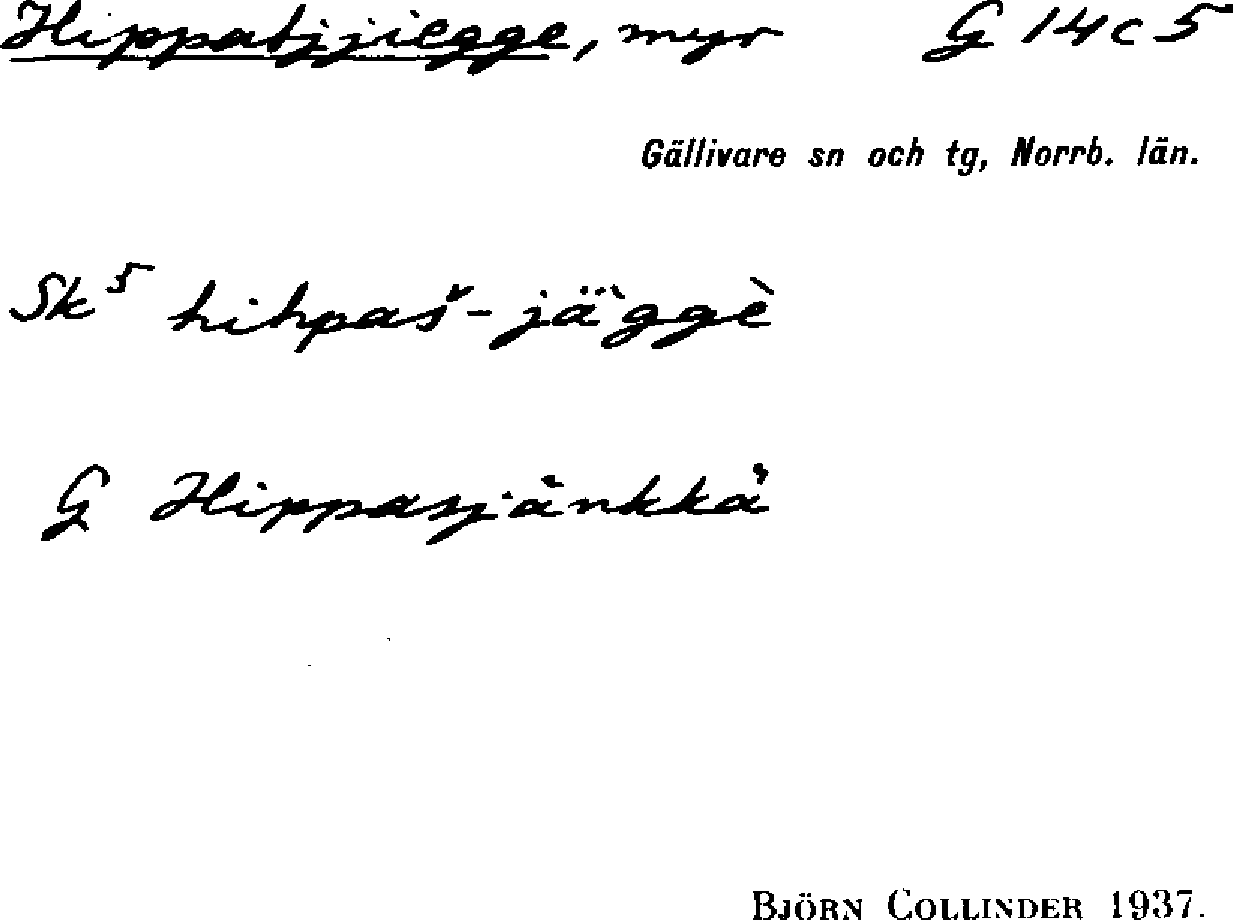 Hippatjjiegge, myr G 14c5
Gällivare sn och tg, Norrb. län.
Sk⁵ hihpaš-jä̀ggè
G Hippasjänkkä
BJÖRN COLLINDER 1937.